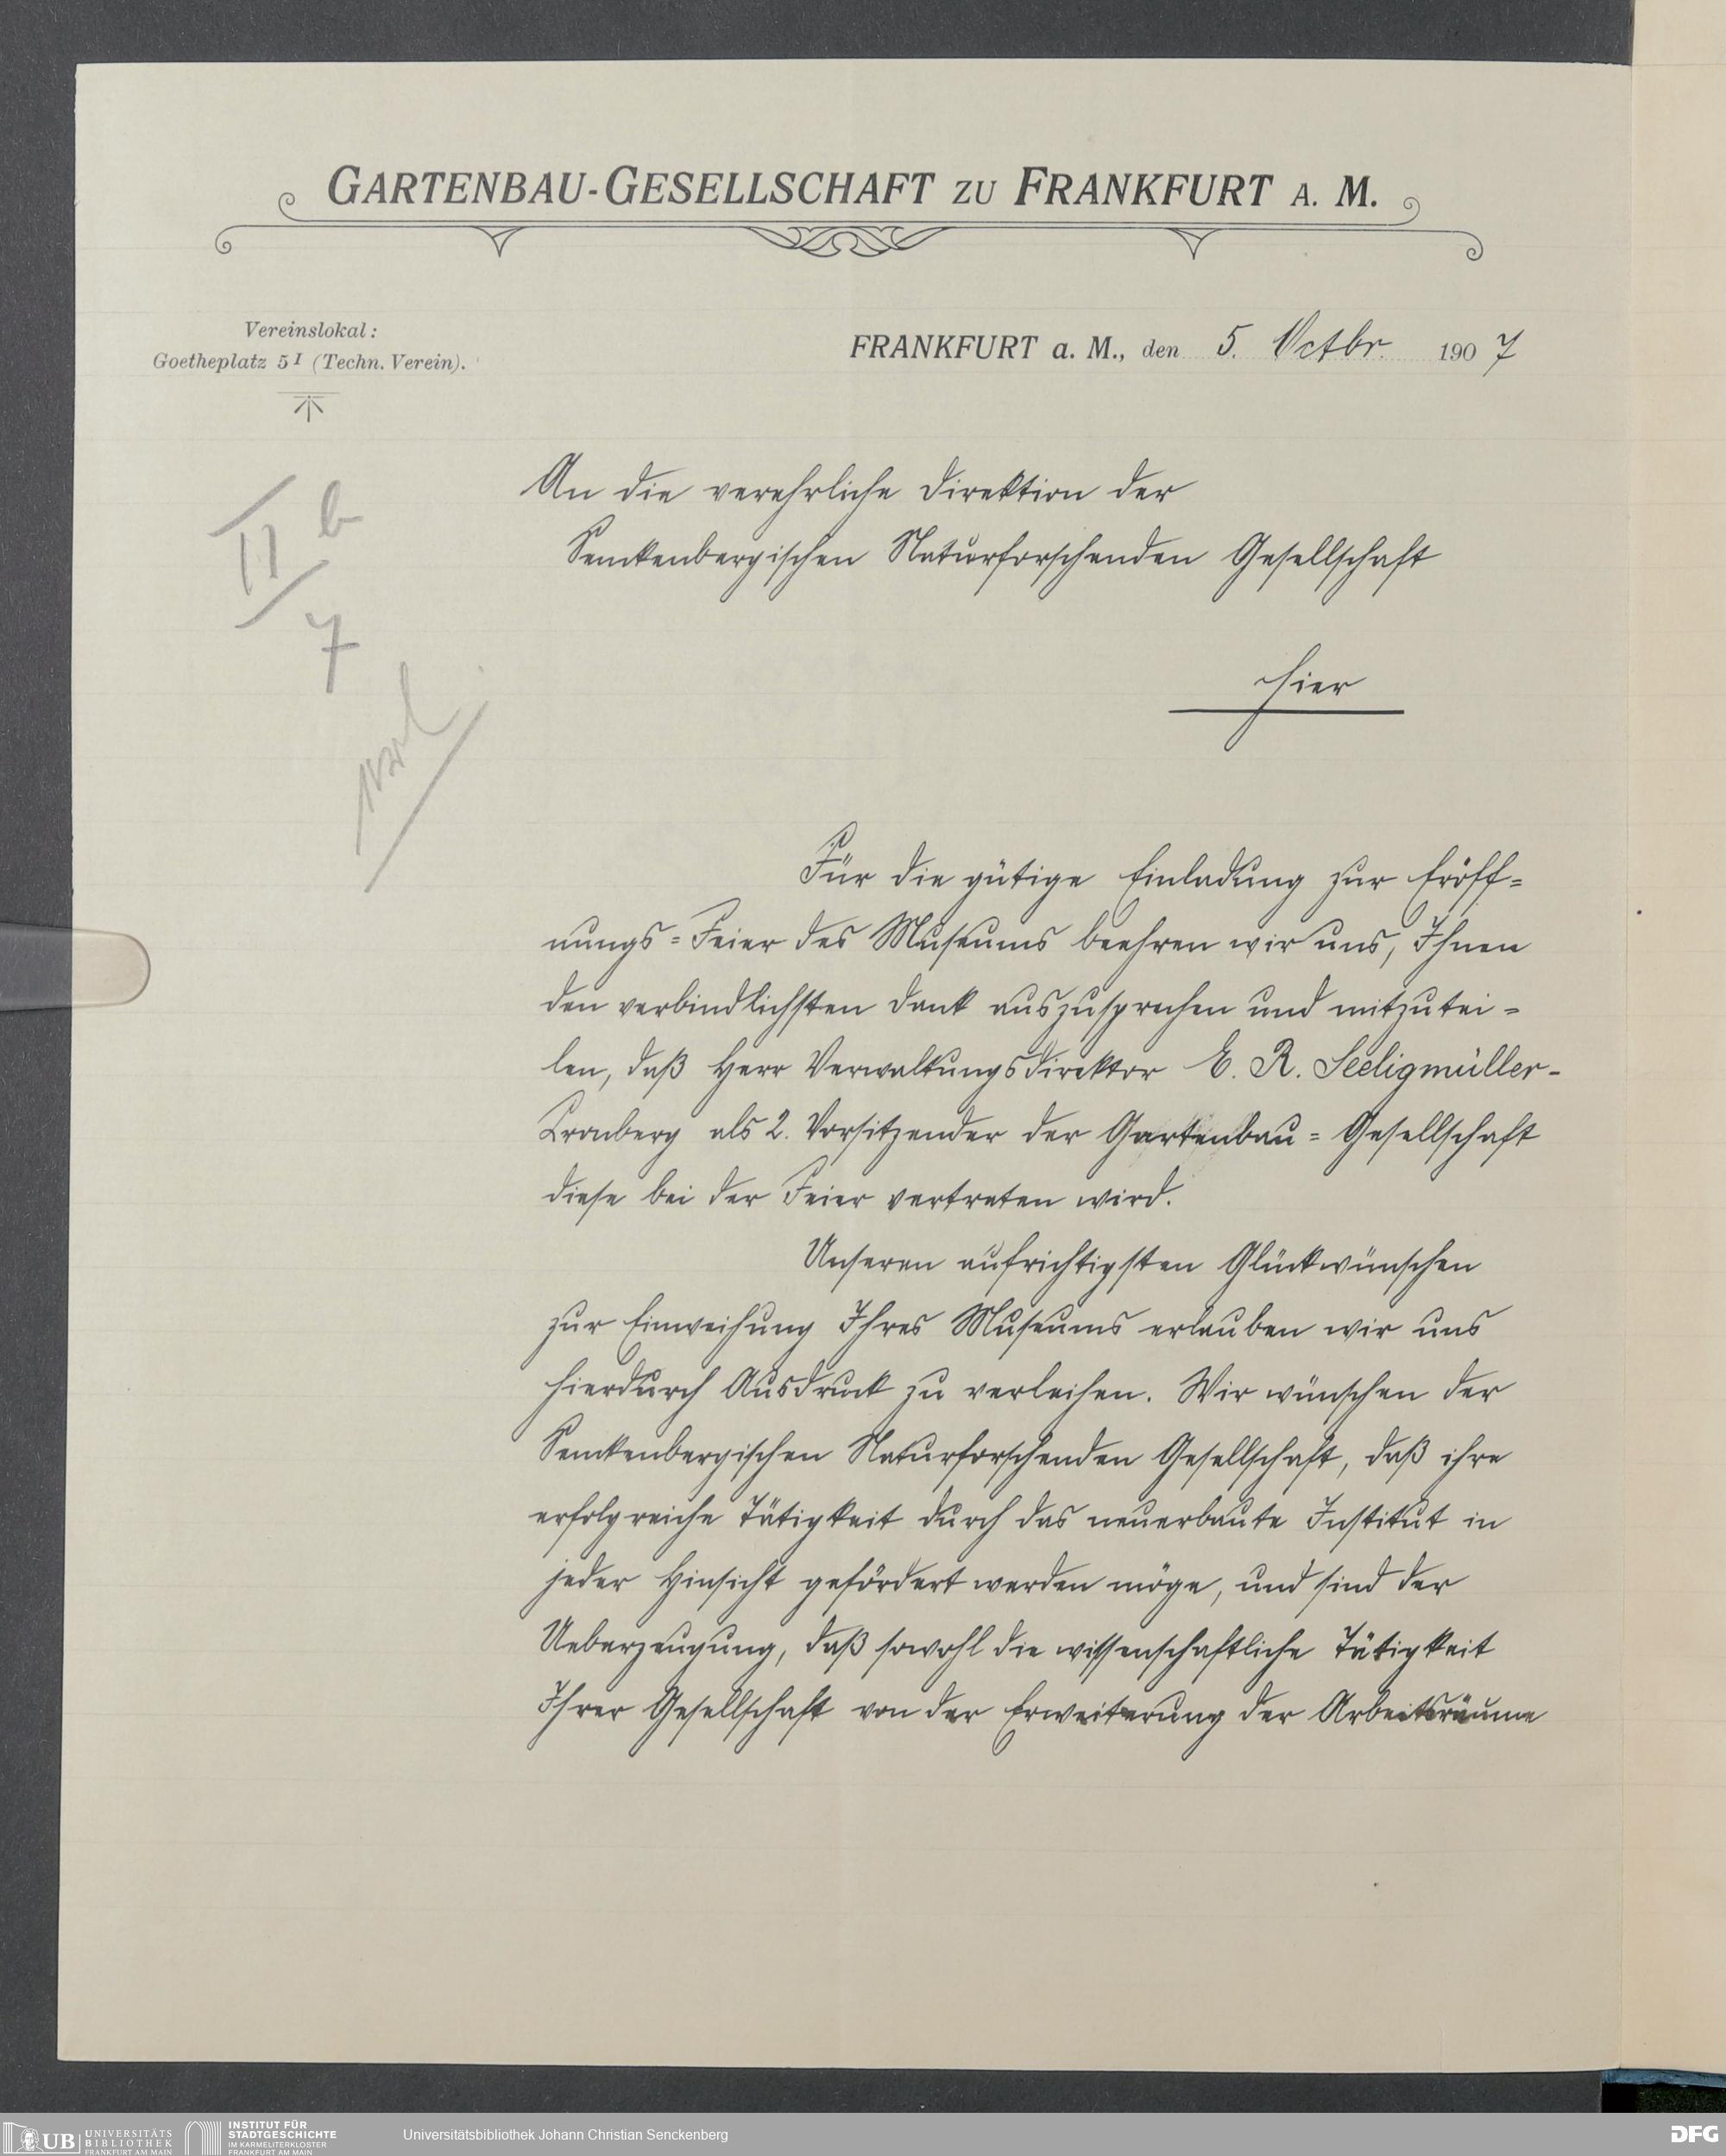 GARTENBAU-GESELLSCHAFT ZU FRANKFURT A. M.
Vereinslokal:
Goetheplatz 5 I (Techn. Verein).
FRANKFURT a. M., den 5. Octbr. 1907
II b
7
An die verehrliche Direktion der
Senckenbergischen Naturforschenden Gesellschaft
hier
Für die gütige Einladung zur Eröff=
nungs=Feier des Museums beehren wir uns, Ihnen
den verbindlichsten Dank auszusprechen und mitzutei=
len, daß Herr Verwaltungsdirektor E. R. Seeligmüller-
Cronberg als 2. Vorsitzender der Gartenbau=Gesellschaft
diese bei der Feier vertreten wird.
Unseren aufrichtigsten Glückwünschen
zur Einweihung Ihres Museums erlauben wir uns
hierdurch Ausdruck zu verleihen. Wir wünschen der
Senckenbergischen Naturforschenden Gesellschaft, daß ihre
erfolgreiche Tätigkeit durch das neuerbaute Institut in
jeder Hinsicht gefördert werden möge, und sind der
Ueberzeugung, daß sowohl die wissenschaftliche Tätigkeit
Ihrer Gesellschaft von der Erweiterung der Arbeitsräume
UB UNIVERSITÄTS
BIBLIOTHEK
FRANKFURT AM MAIN
INSTITUT FÜR
STADTGESCHICHTE
IM KARMELITERKLOSTER
FRANKFURT AM MAIN
Universitätsbibliothek Johann Christian Senckenberg
DFG